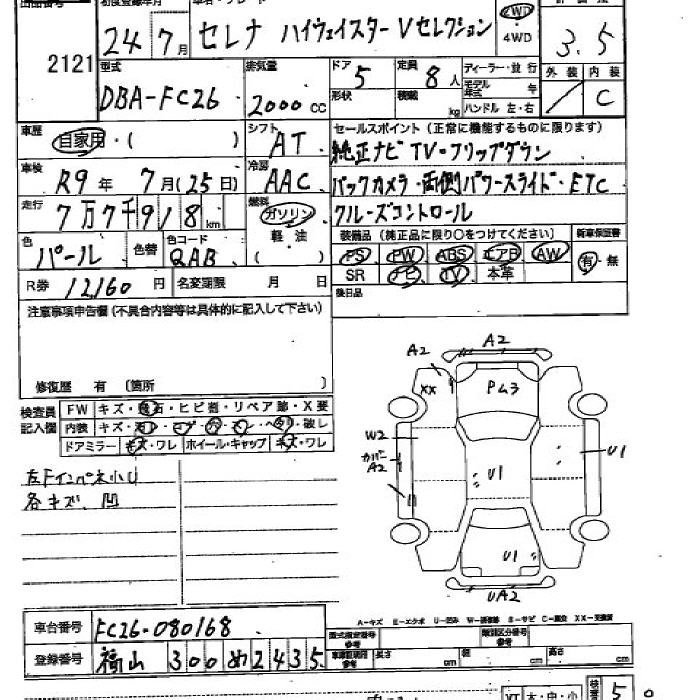 出品番号 初度登録年月 車名・グレード 2WD 評価点
2121 24年7月 セレナ ハイウェイスターVセレクション 4WD 3.5
型式 排気量 ドア 定員 ディーラー・並行 外装 内装
DBA-FC26 2000cc 5 8人 モデル年式 年 / C
形状 積載 kg ハンドル 左・右
車歴 自家用・( ) シフト AT セールスポイント (正常に機能するものに限ります)
純正ナビTV・フリップダウン
車検 R9年7月(25日) 冷房 AAC バックカメラ・両側パワースライド・ETC
走行 7万7千918km 燃料 ガソリン 軽・油 ( ) クルーズコントロール
色 パール 色替 色コード QAB 装備品 (純正品に限り○をつけてください) 新車保証書
PS PW ABS エアB AW 有・無
SR ナビ TV 本革
R券 12160円 名変期限 月 日 後日品
注意事項申告欄 (不具合内容等は具体的に記入して下さい)
修復歴 有 (箇所 )
検査員記入欄 FW キズ・飛石・ヒビ割・リペア跡・X要
内装 キズ・
ドアミラー キズ・ワレ ホイール・キャップ キズ・ワレ
左Fインペネ小U
各キズ、凹
A2 A2
XX Pム3
W2
カバー A2 U1 U1
U1
UA2
A-キズ E-エクボ U-凹み W-補修跡 S-サビ C-腐食 XX-交換済
車台番号 FC26-080168 型式指定番号 参考 類別区分番号 参考
登録番号 福山 300 め 2435 車庫証明用 参考 長さ cm 幅 cm 高さ cm
大・中・小 5